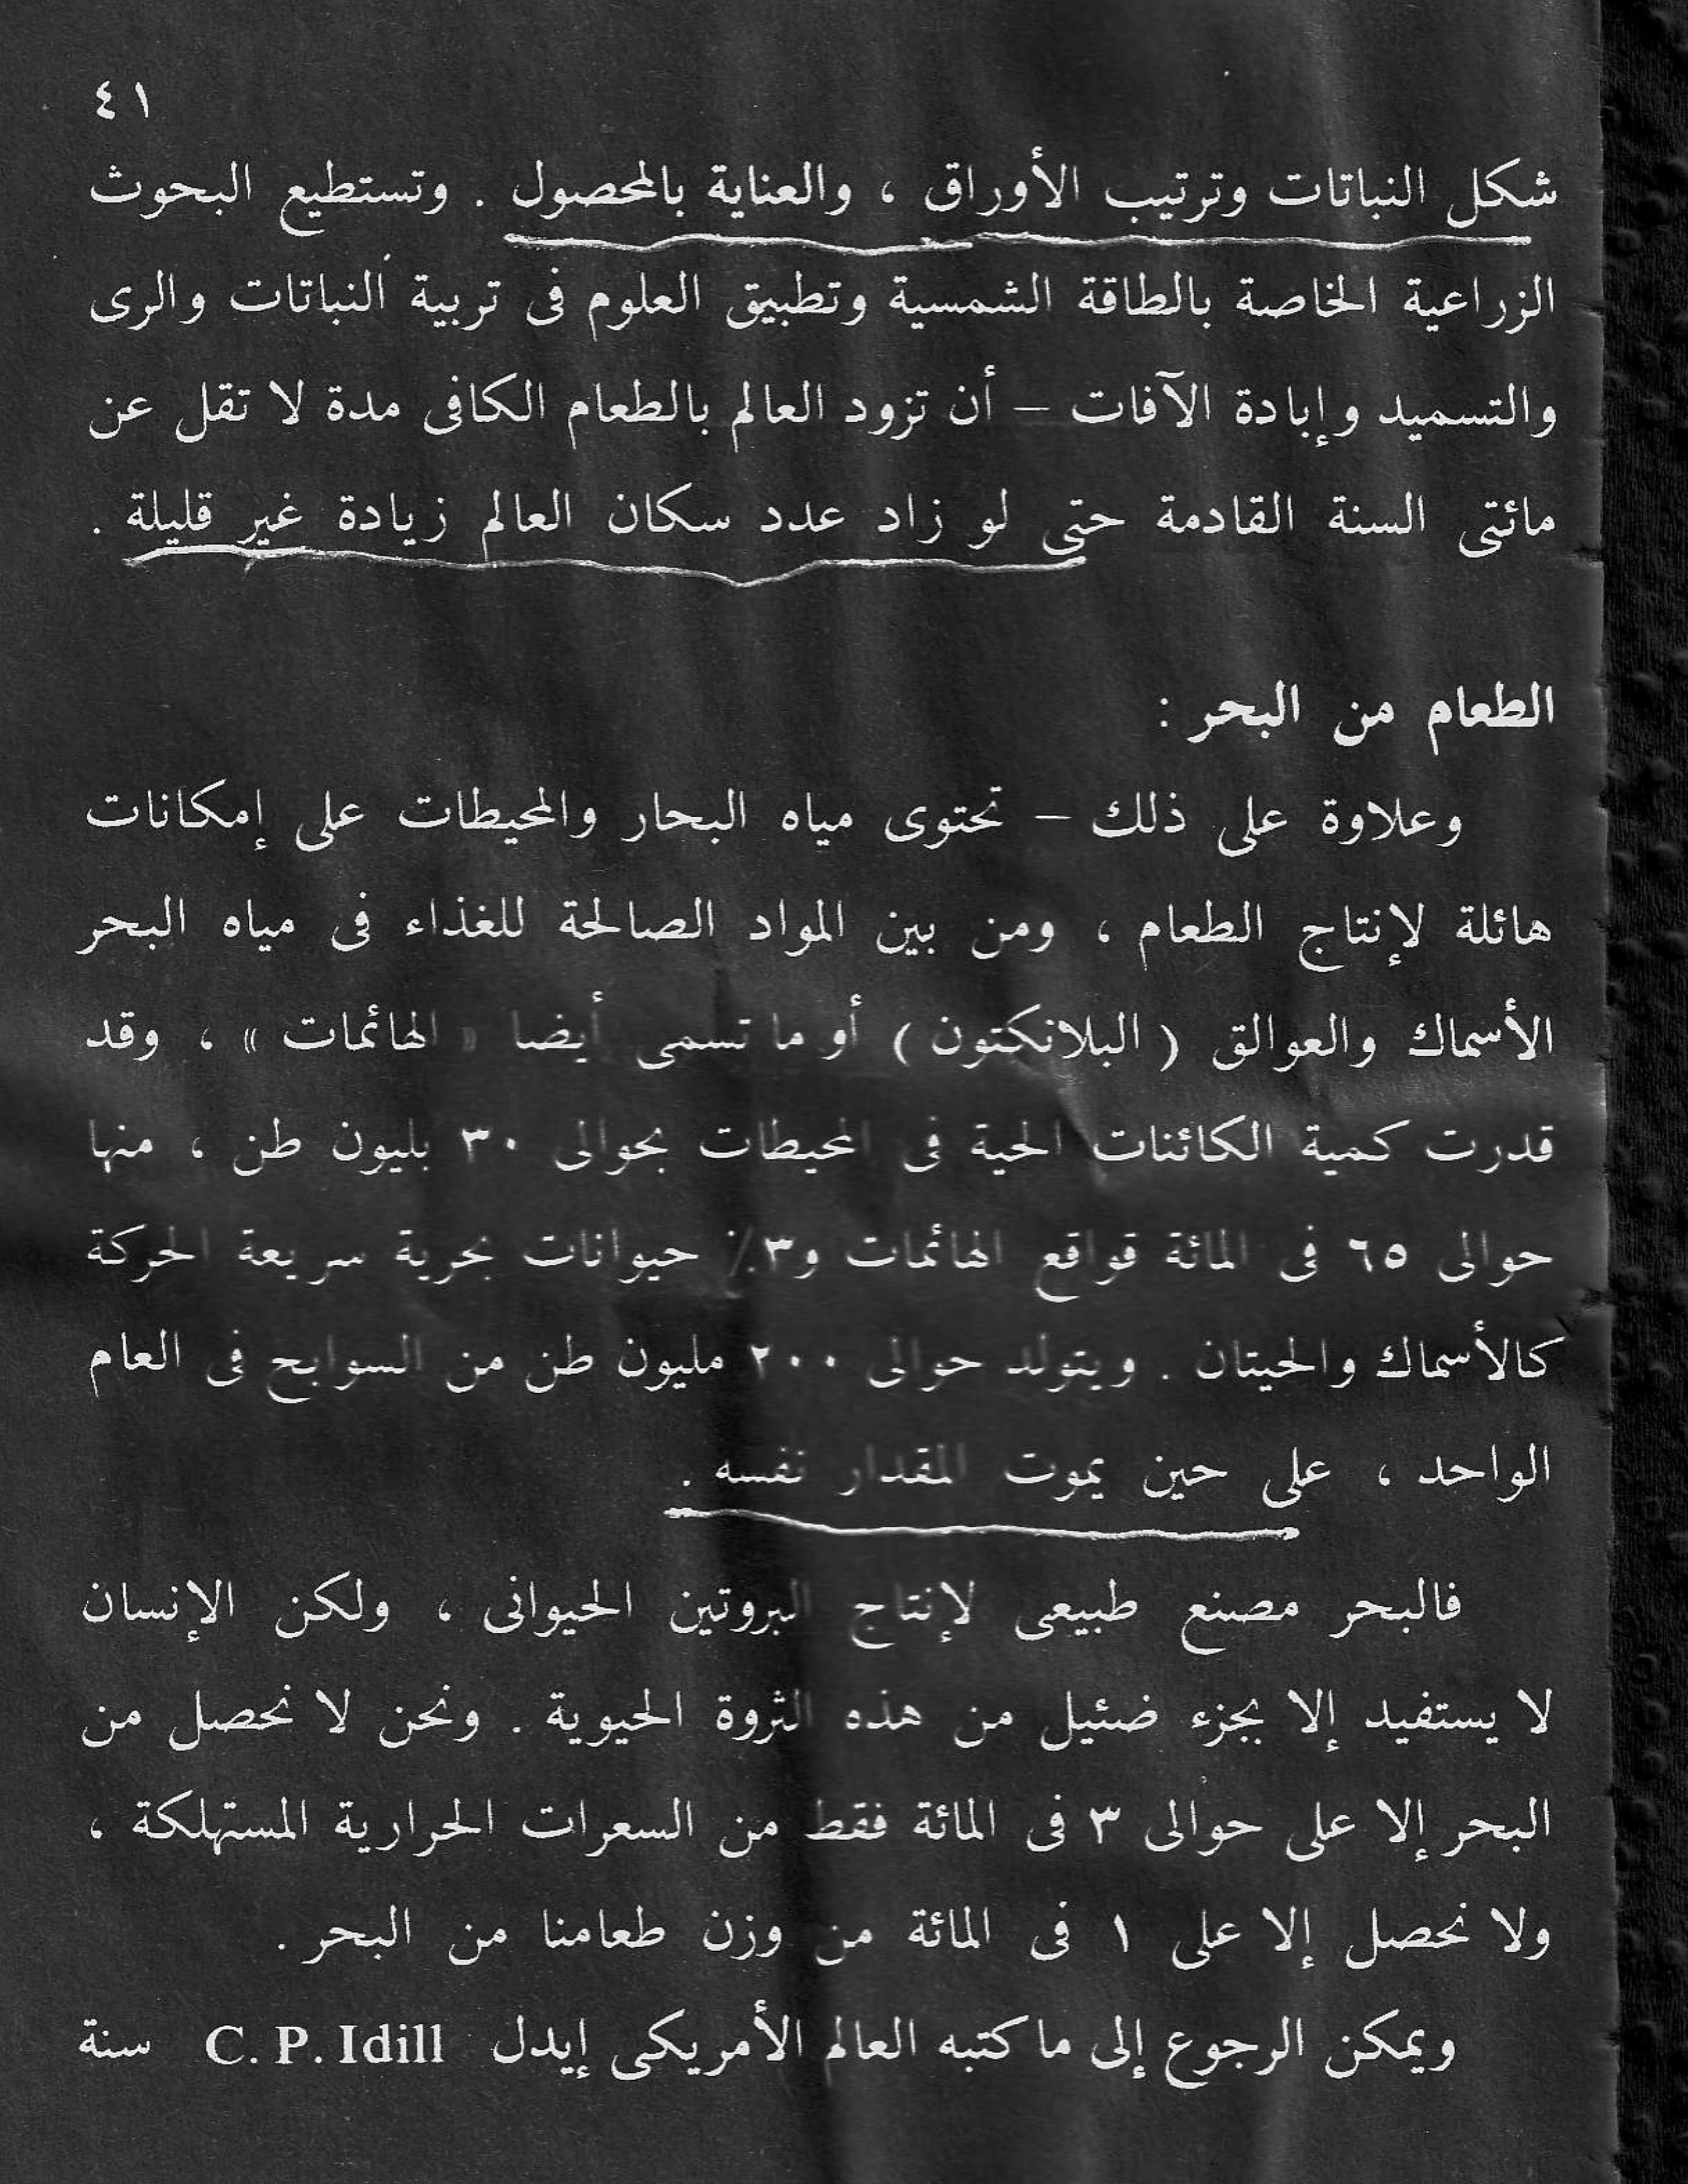 ٤١
شكل النباتات وترتيب الأوراق ، والعناية بالمحصول . وتستطيع البحوث
الزراعية الخاصة بالطاقة الشمسية وتطبيق العلوم فى تربية النباتات والرى
والتسميد وإبادة الآفات – أن تزود العالم بالطعام الكافى مدة لا تقل عن
مائتى السنة القادمة حتى لو زاد عدد سكان العالم زيادة غير قليلة .
الطعام من البحر :
وعلاوة على ذلك – تحتوى مياه البحار والمحيطات على إمكانات
هائلة لإنتاج الطعام ، ومن بين المواد الصالحة للغذاء فى مياه البحر
الأسماك والعوالق ( البلانكتون ) أو ما تسمى أيضا « الهائمات » ، وقد
قدرت كمية الكائنات الحية فى المحيطات بحوالى ٣٠ بليون طن ، منها
حوالى ٦٥ فى المائة قواقع الهائمات و٣٪ حيوانات بحرية سريعة الحركة
كالأسماك والحيتان . ويتولد حوالى ٢٠٠ مليون طن من السوابح فى العام
الواحد ، على حين يموت المقدار نفسه .
فالبحر مصنع طبيعى لإنتاج البروتين الحيوانى ، ولكن الإنسان
لا يستفيد إلا بجزء ضئيل من هذه الثروة الحيوية . ونحن لا نحصل من
البحر إلا على حوالى ٣ فى المائة فقط من السعرات الحرارية المستهلكة ،
ولا نحصل إلا على ١ فى المائة من وزن طعامنا من البحر .
ويمكن الرجوع إلى ما كتبه العالم الأمريكى إيدل C. P. Idill سنة